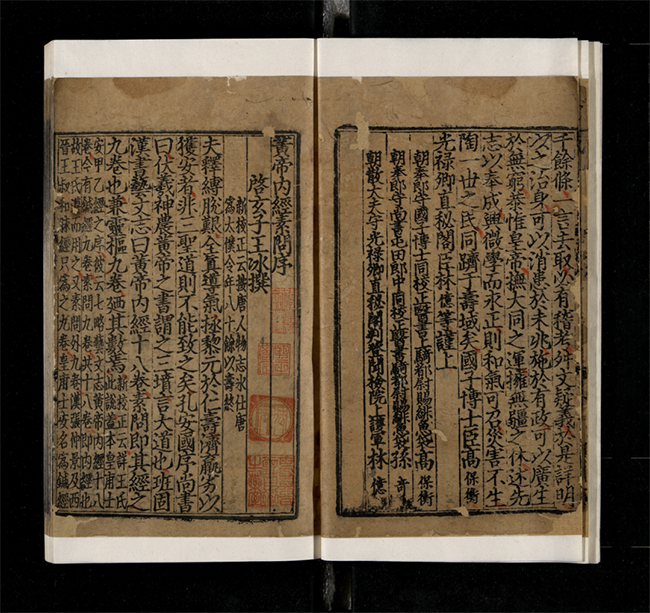 千餘條一言去取必有稽考舛文疑義於是詳明
以之治身可以消患於未兆施於有政可以廣生
於無窮恭惟皇帝撫大同之運擁無疆之休述先
志以奉成興微學而永正則和氣可召災害不生
陶一世之民同躋于壽域矣國子博士臣高保衡
光祿卿直秘閣臣林億等謹上
朝奉郎守國子博士同校正醫書上騎都尉賜緋魚袋高保衡
朝奉郎守尚書屯田郎中同校正醫書騎都尉賜緋魚袋孫奇
朝散大夫守光祿卿直秘閣判登聞檢院上護軍林億
黃帝內經素問序
啓玄子王冰撰
新校正云按唐人物志冰仕唐
爲太僕令年八十餘以壽終
夫釋縛脫艱全真導氣拯黎元於仁壽濟羸劣以
獲安者非三聖道則不能致之矣孔安國序尚書
曰伏羲神農黃帝之書謂之三墳言大道也班固
漢書藝文志曰黃帝內經十八卷素問即其經之
九卷也兼靈樞九卷廼其數焉
新校正云詳王氏
此說蓋本皇甫士
安甲乙經之序彼云七略藝文志黃帝內經十八
卷今有鍼經九卷素問九卷共十八卷即內經也
故王氏遵而用之又素問外九卷漢張仲景及西
晉王叔和脈經只爲之九卷皇甫士安名爲鍼經